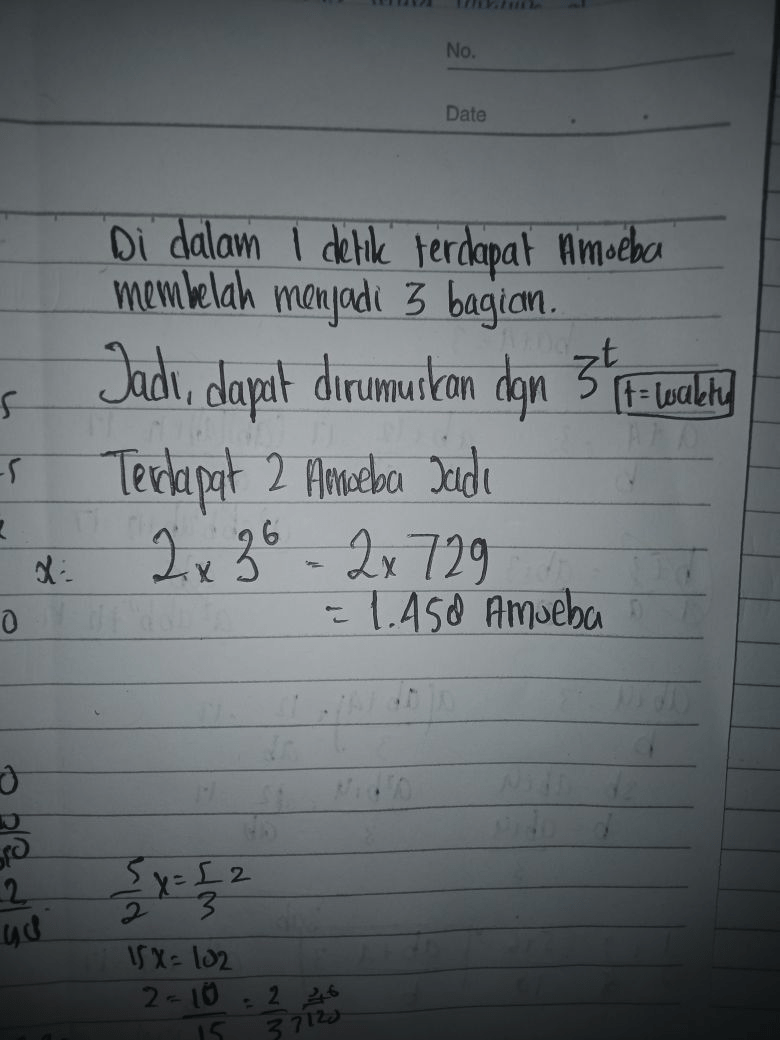 No.
Date
Di dalam 1 detik terdapat Amoeba
membelah menjadi 3 bagian.
Jadi, dapat dirumuskan dgn 3^t t = waktu
Terdapat 2 Amoeba Jadi
x = 2 x 3^6 = 2 x 729
= 1.458 Amoeba
5/2 x = 5/3 2
15x = 102
2 = 10/15 = 2/3